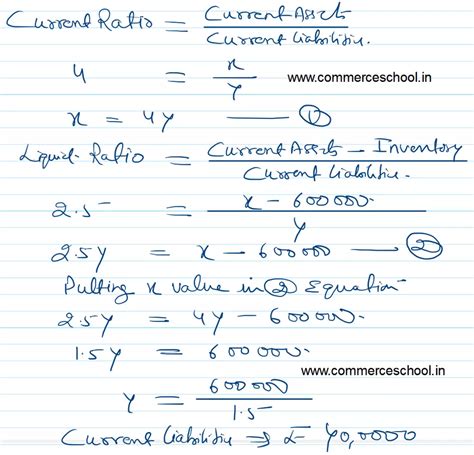 Current Ratio = Current Assets / Current Liabilities.
4 = x / y
www.commerceschool.in
x = 4y — ①
Liquid Ratio = Current Assets - Inventory / Current Liabilities.
2.5 = x - 600000. / y
2.5y = x - 600000 — ②
Putting x value in ② Equation
2.5y = 4y - 600000.
1.5y = 600000.
www.commerceschool.in
y = 600000 / 1.5
Current Liabilities ⇒ ₤ 40,0000